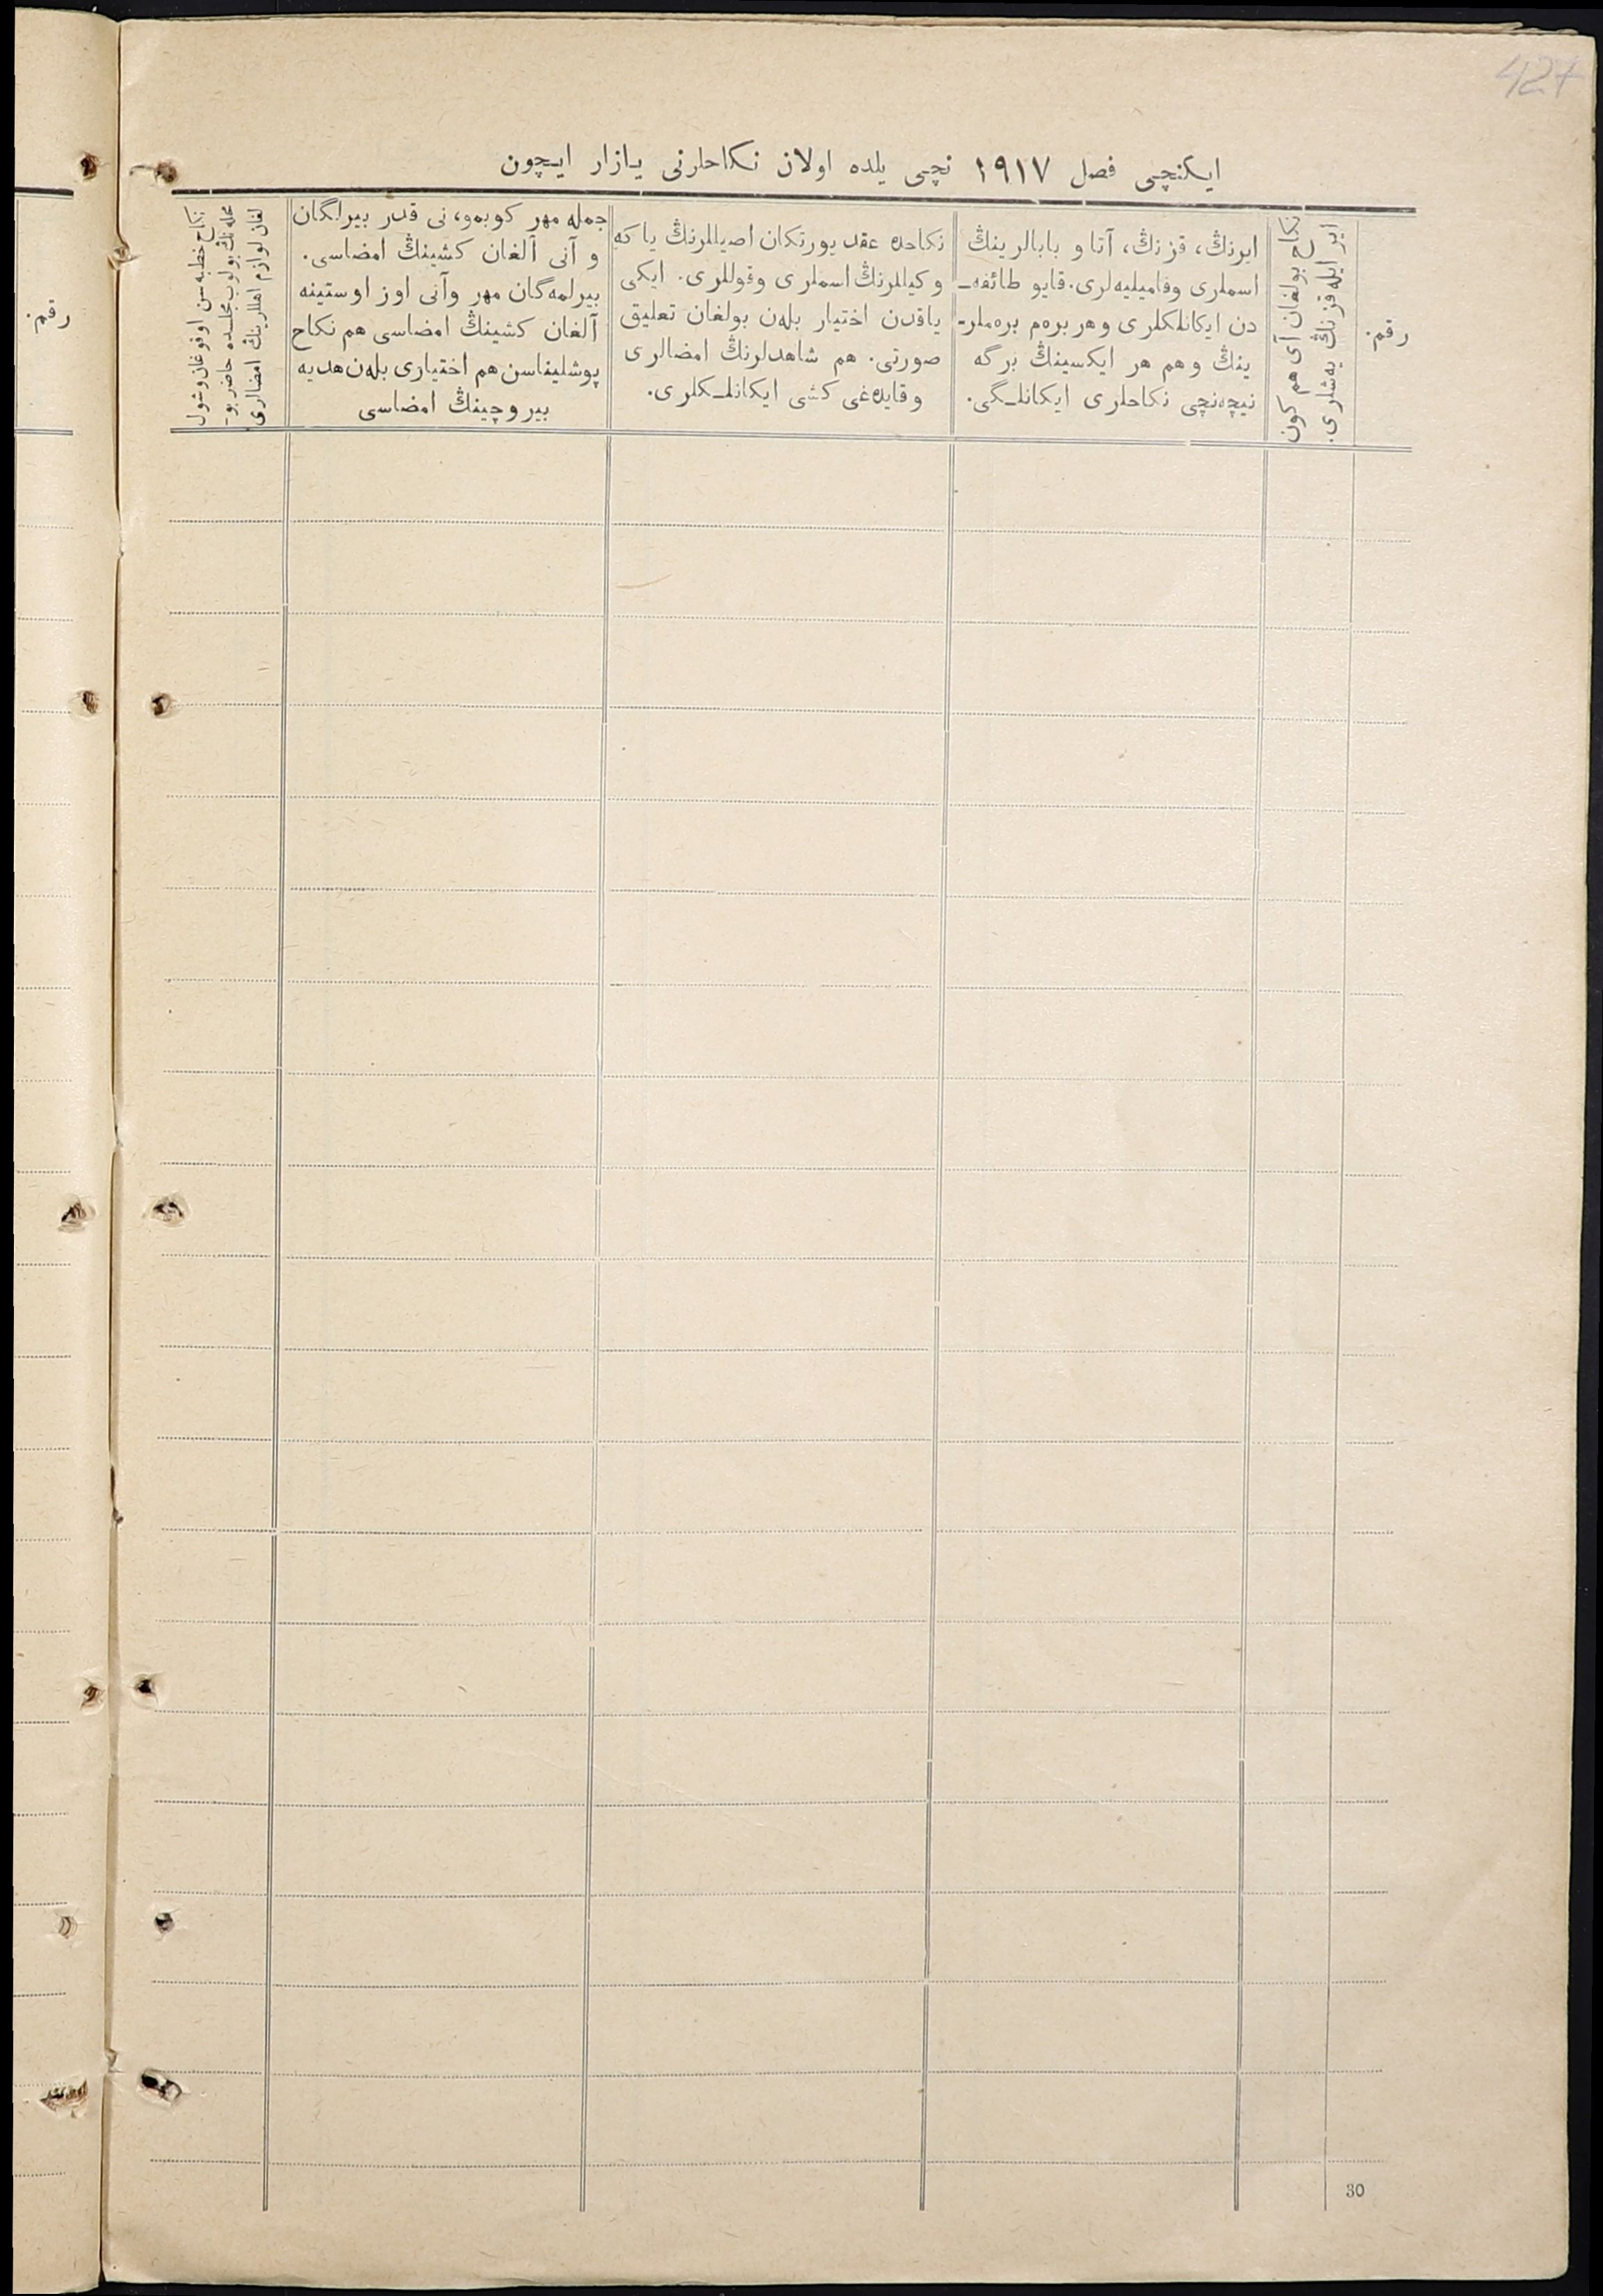 427
ایکنچی فصل ۱۹۱۷ نچی یلده اولان نکاحلرنی یازار ایچون
رقم.
ایر ایله قزنڭ یەشلری.
نکاح بولغان آی هم کون
ایرنڭ، قزنڭ، آتا و بابالرینڭ
اسملری وفامیلیەلری. قایو طائفە-
دن ایکانلکلری وهر برەم برەملر-
ینڭ وهم هر ایکسینڭ برگه
نیچەنچی نکاحلری ایکانلـگی.
نکاحده عقد یورتکان اصیللرنڭ یا که
وکیللرنڭ اسملری وقوللری. ایکی
یاقدن اختیار بلەن بولغان تعلیق
صورتی. هم شاهدلرنڭ امضالری
وقایدەغی کشی ایکانلـکلری.
جمله مهر کوبمو، نی قدر بیرلگان
و آنی آلغان کشینڭ امضاسی.
بیرلمەگان مهر وآنی اوز اوستینه
آلغان کشینڭ امضاسی هم نکاح
پوشلیناسن هم اختیاری بلەن هدیه
بیروچینڭ امضاسی
نکاح خطبه سن اوقوغان وشول
محلەنڭ بولوب مجلسده حاضر بو-
لغان لوازم اهللرینڭ امضالری
رقم.
30